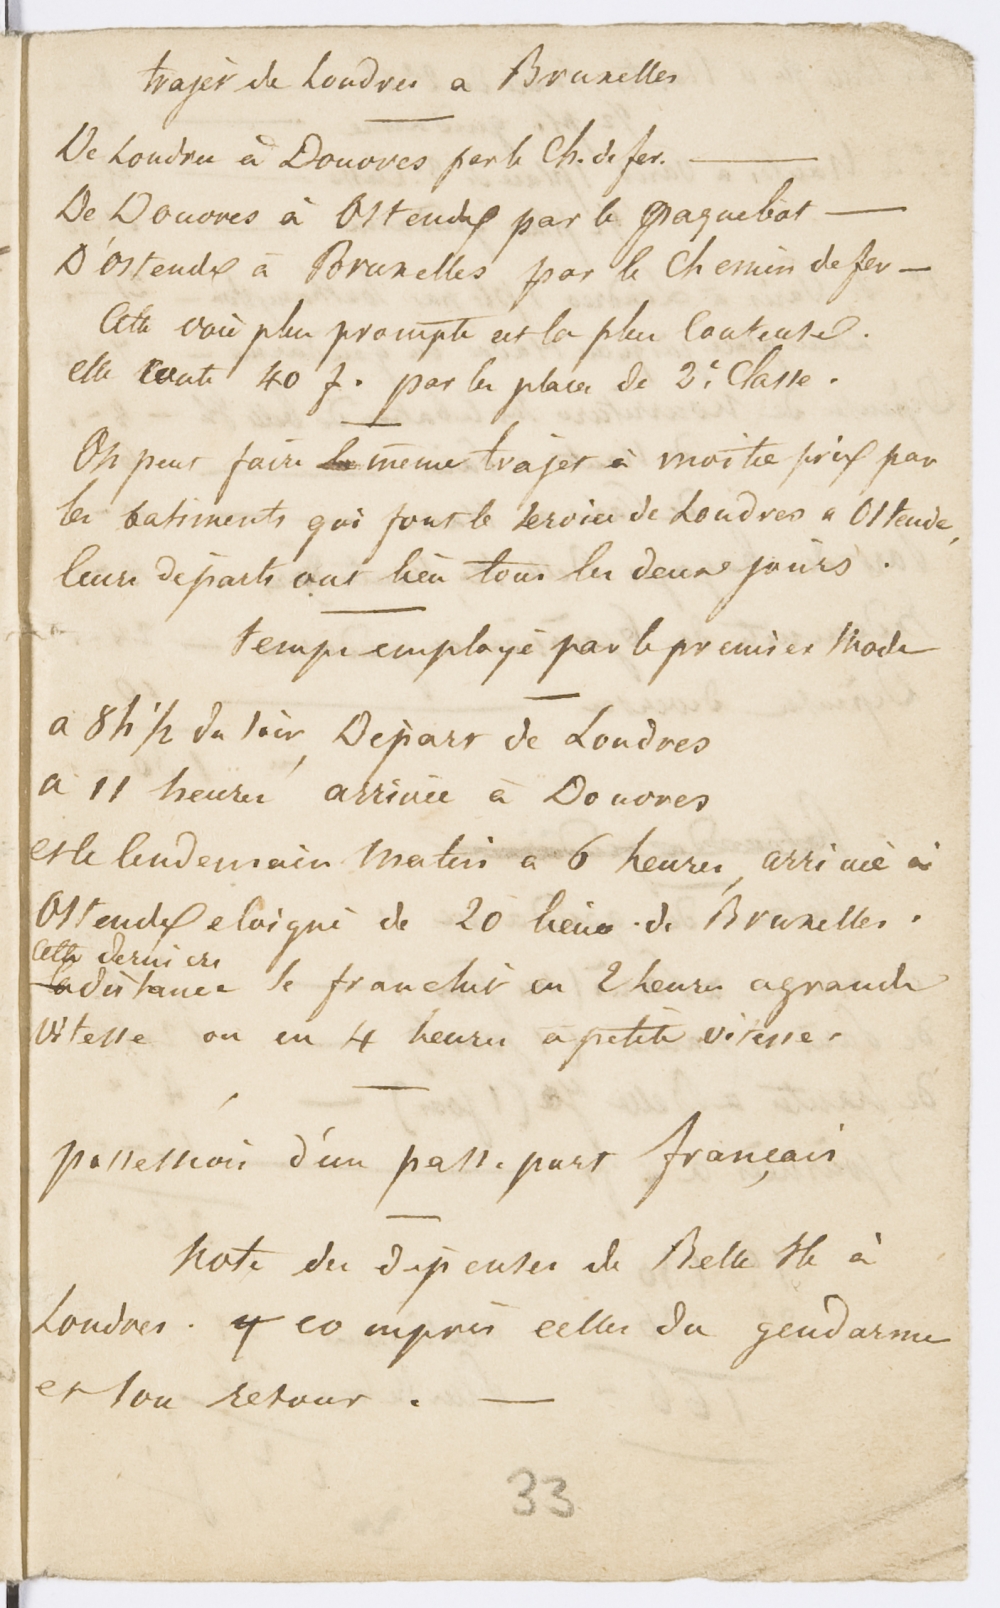 trajèt de Londres a Bruxelles
De Londres à Douvres par le Ch. de fer. —
De Douvres à Ostende par le paquebot —
D'ostende à Bruxelles par le Chemin de fer —
Cette voie plus prompte est la plus Couteuse.
elle Coute 40 f. par les places de 2e Classe.
On peut faire le même trajèt à moitié prix par
les batiments qui font le service de Londres a Ostende,
leurs départs ont lieu tous les deux jours.
temps employé par le premier Mode
a 8h ½ du soir, Départ de Londres
a 11 heures, arrivée à Douvres
et le lendemain Matin a 6 heures, arrivée à
Ostende eloigné de 20 lieues de Bruxelles.
Cette derniere
la distance se franchit en 2 heures a grande
vitesse ou en 4 heures a petite vitesse.
possession d'un passeport français
Note des dépenses de Belle Ile à
Londres. y compris celles du gendarme
et son retour. —
33